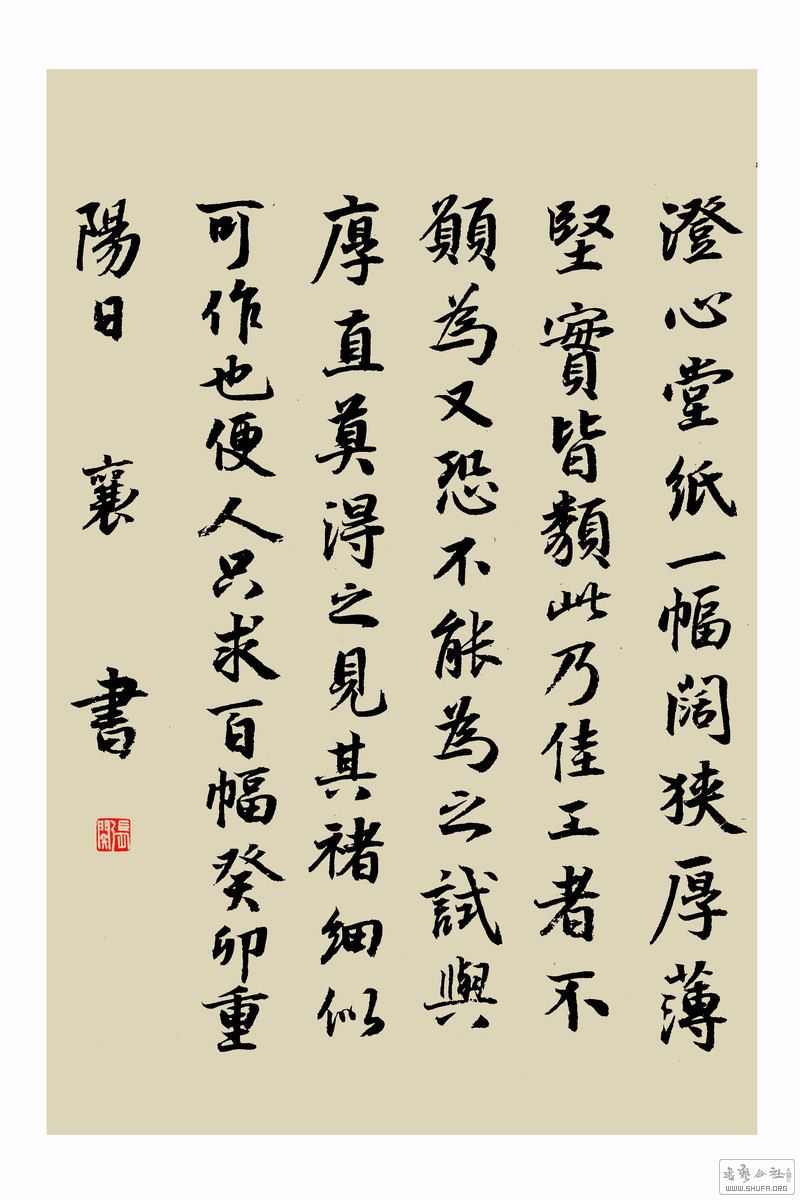 澄心堂紙一幅闊狹厚薄
堅實皆類此乃佳工者不
願為又恐不能為之試與
厚直莫得之見其楮細似
可作也便人只求百幅癸卯重
陽日 襄 書
書藝公社
WWW.SHUFA.ORG